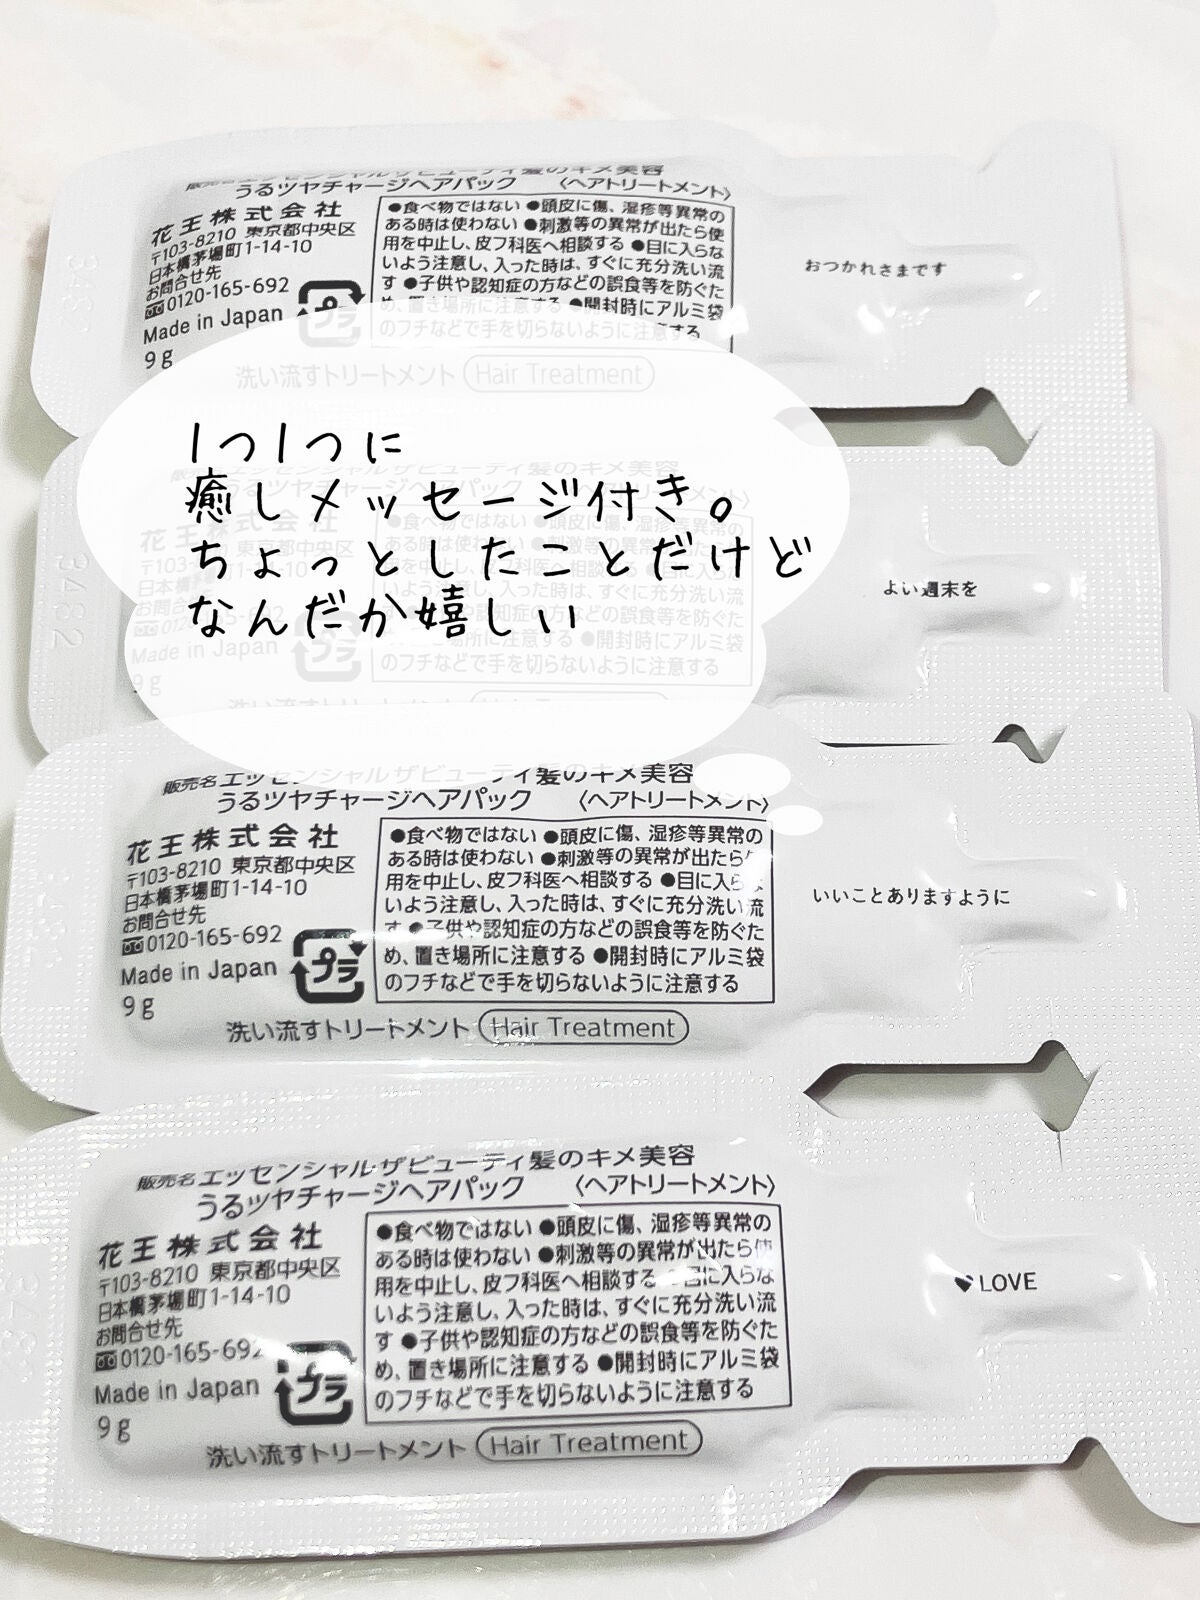 販売名エッセンシャルザビューティ髪のキメ美容
うるツヤチャージヘアパック 〈ヘアトリートメント〉
花王株式会社
〒103-8210 東京都中央区
日本橋茅場町1-14-10
お問合せ先
0120-165-692
Made in Japan
9g
プラ
●食べ物ではない ●頭皮に傷、湿疹等異常の
ある時は使わない ●刺激等の異常が出たら使
用を中止し、皮フ科医へ相談する ●目に入らな
いよう注意し、入った時は、すぐに充分洗い流
す ●子供や認知症の方などの誤食等を防ぐた
め、置き場所に注意する ●開封時にアルミ袋
のフチなどで手を切らないように注意する
洗い流すトリートメント Hair Treatment
おつかれさまです
1つ1つに
癒しメッセージ付き。
ちょっとしたことだけど
なんだか嬉しい
エッセンシャルザビューティ髪のキメ美容
花王株式会社
〒103-
東京都中央区
日本橋
お問合せ先
Made in Japan
9g
プラ
●食べ物ではない ●頭皮に傷、湿疹等異常の
ある時は使わない
用を中止し、皮フ科医へ相談する ●目に入らな
いよう注意し、入った時は、すぐに充分洗い流
す ●子供や認知症の方などの誤食等を防ぐた
め、置き場所に注意する ●開封時にアルミ袋
のフチなどで手を切らないように注意する
洗い流すトリートメント
3482
よい週末を
販売名エッセンシャルザビューティ髪のキメ美容
うるツヤチャージヘアパック 〈ヘアトリートメント〉
花王株式会社
〒103-8210 東京都中央区
日本橋茅場町1-14-10
お問合せ先
0120-165-692
Made in Japan
9g
プラ
●食べ物ではない ●頭皮に傷、湿疹等異常の
ある時は使わない ●刺激等の異常が出たら使
用を中止し、皮フ科医へ相談する ●目に入らな
いよう注意し、入った時は、すぐに充分洗い流
す ●子供や認知症の方などの誤食等を防ぐた
め、置き場所に注意する ●開封時にアルミ袋
のフチなどで手を切らないように注意する
洗い流すトリートメント Hair Treatment
いいことありますように
販売名エッセンシャルザビューティ髪のキメ美容
うるツヤチャージヘアパック 〈ヘアトリートメント〉
花王株式会社
〒103-8210 東京都中央区
日本橋茅場町1-14-10
お問合せ先
0120-165-692
Made in Japan
9g
プラ
●食べ物ではない ●頭皮に傷、湿疹等異常の
ある時は使わない ●刺激等の異常が出たら使
用を中止し、皮フ科医へ相談する ●目に入らな
いよう注意し、入った時は、すぐに充分洗い流
す ●子供や認知症の方などの誤食等を防ぐた
め、置き場所に注意する ●開封時にアルミ袋
のフチなどで手を切らないように注意する
洗い流すトリートメント Hair Treatment
♥LOVE